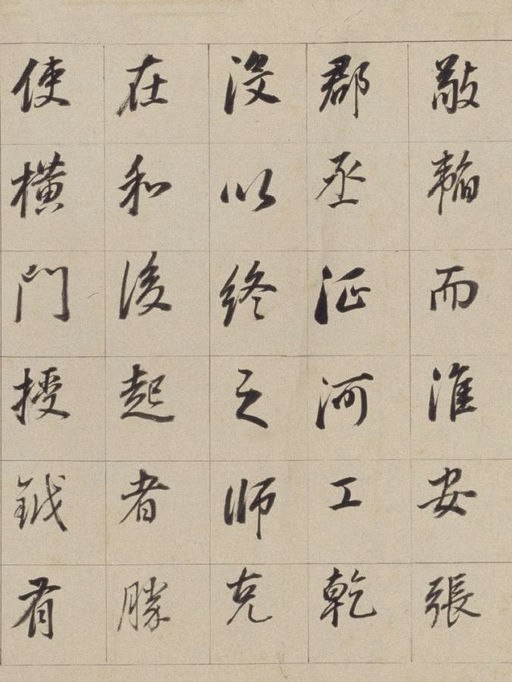 敲韜而淮安張
郡丞涖河工乾
没以終之師克
在和後起者勝
使橫門授鉞有